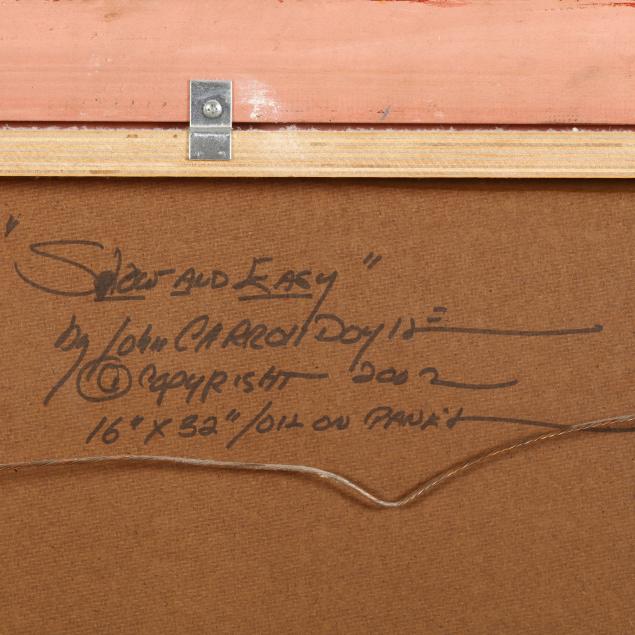 "Slow and Easy"
by John Carroll Doyle
© Copyright 2002
16" x 32" / oil on panel